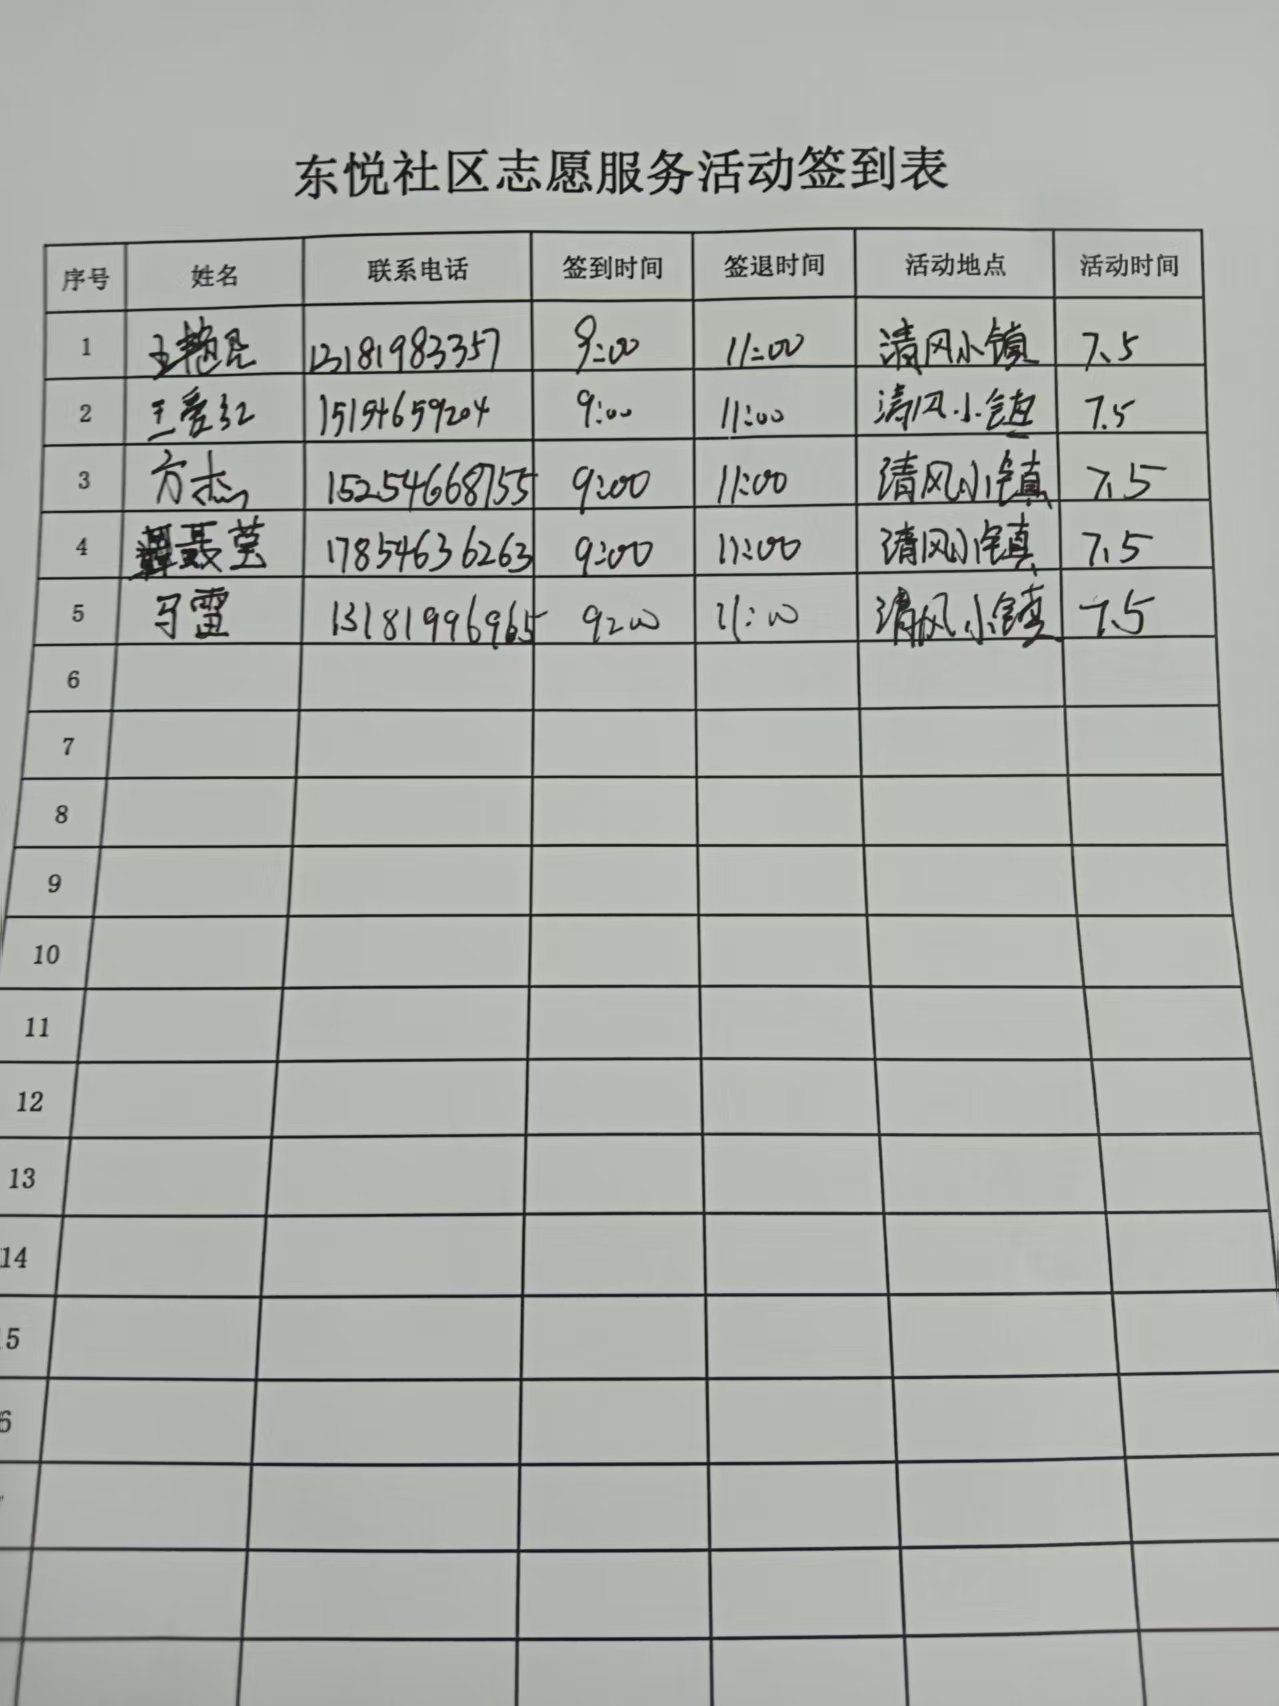 东悦社区志愿服务活动签到表
序号 姓名 联系电话 签到时间 签退时间 活动地点 活动时间
1 王艳昆 13181983357 9:00 11:00 清风小镇 7.5
2 王爱红 15154659204 9:00 11:00 清风小镇 7.5
3 方杰 15254668755 9:00 11:00 清风小镇 7.5
4 聂莹 17854636263 9:00 11:00 清风小镇 7.5
5 马雷 13181996965 9:00 11:00 清风小镇 7.5
6
7
8
9
10
11
12
13
14
15
6